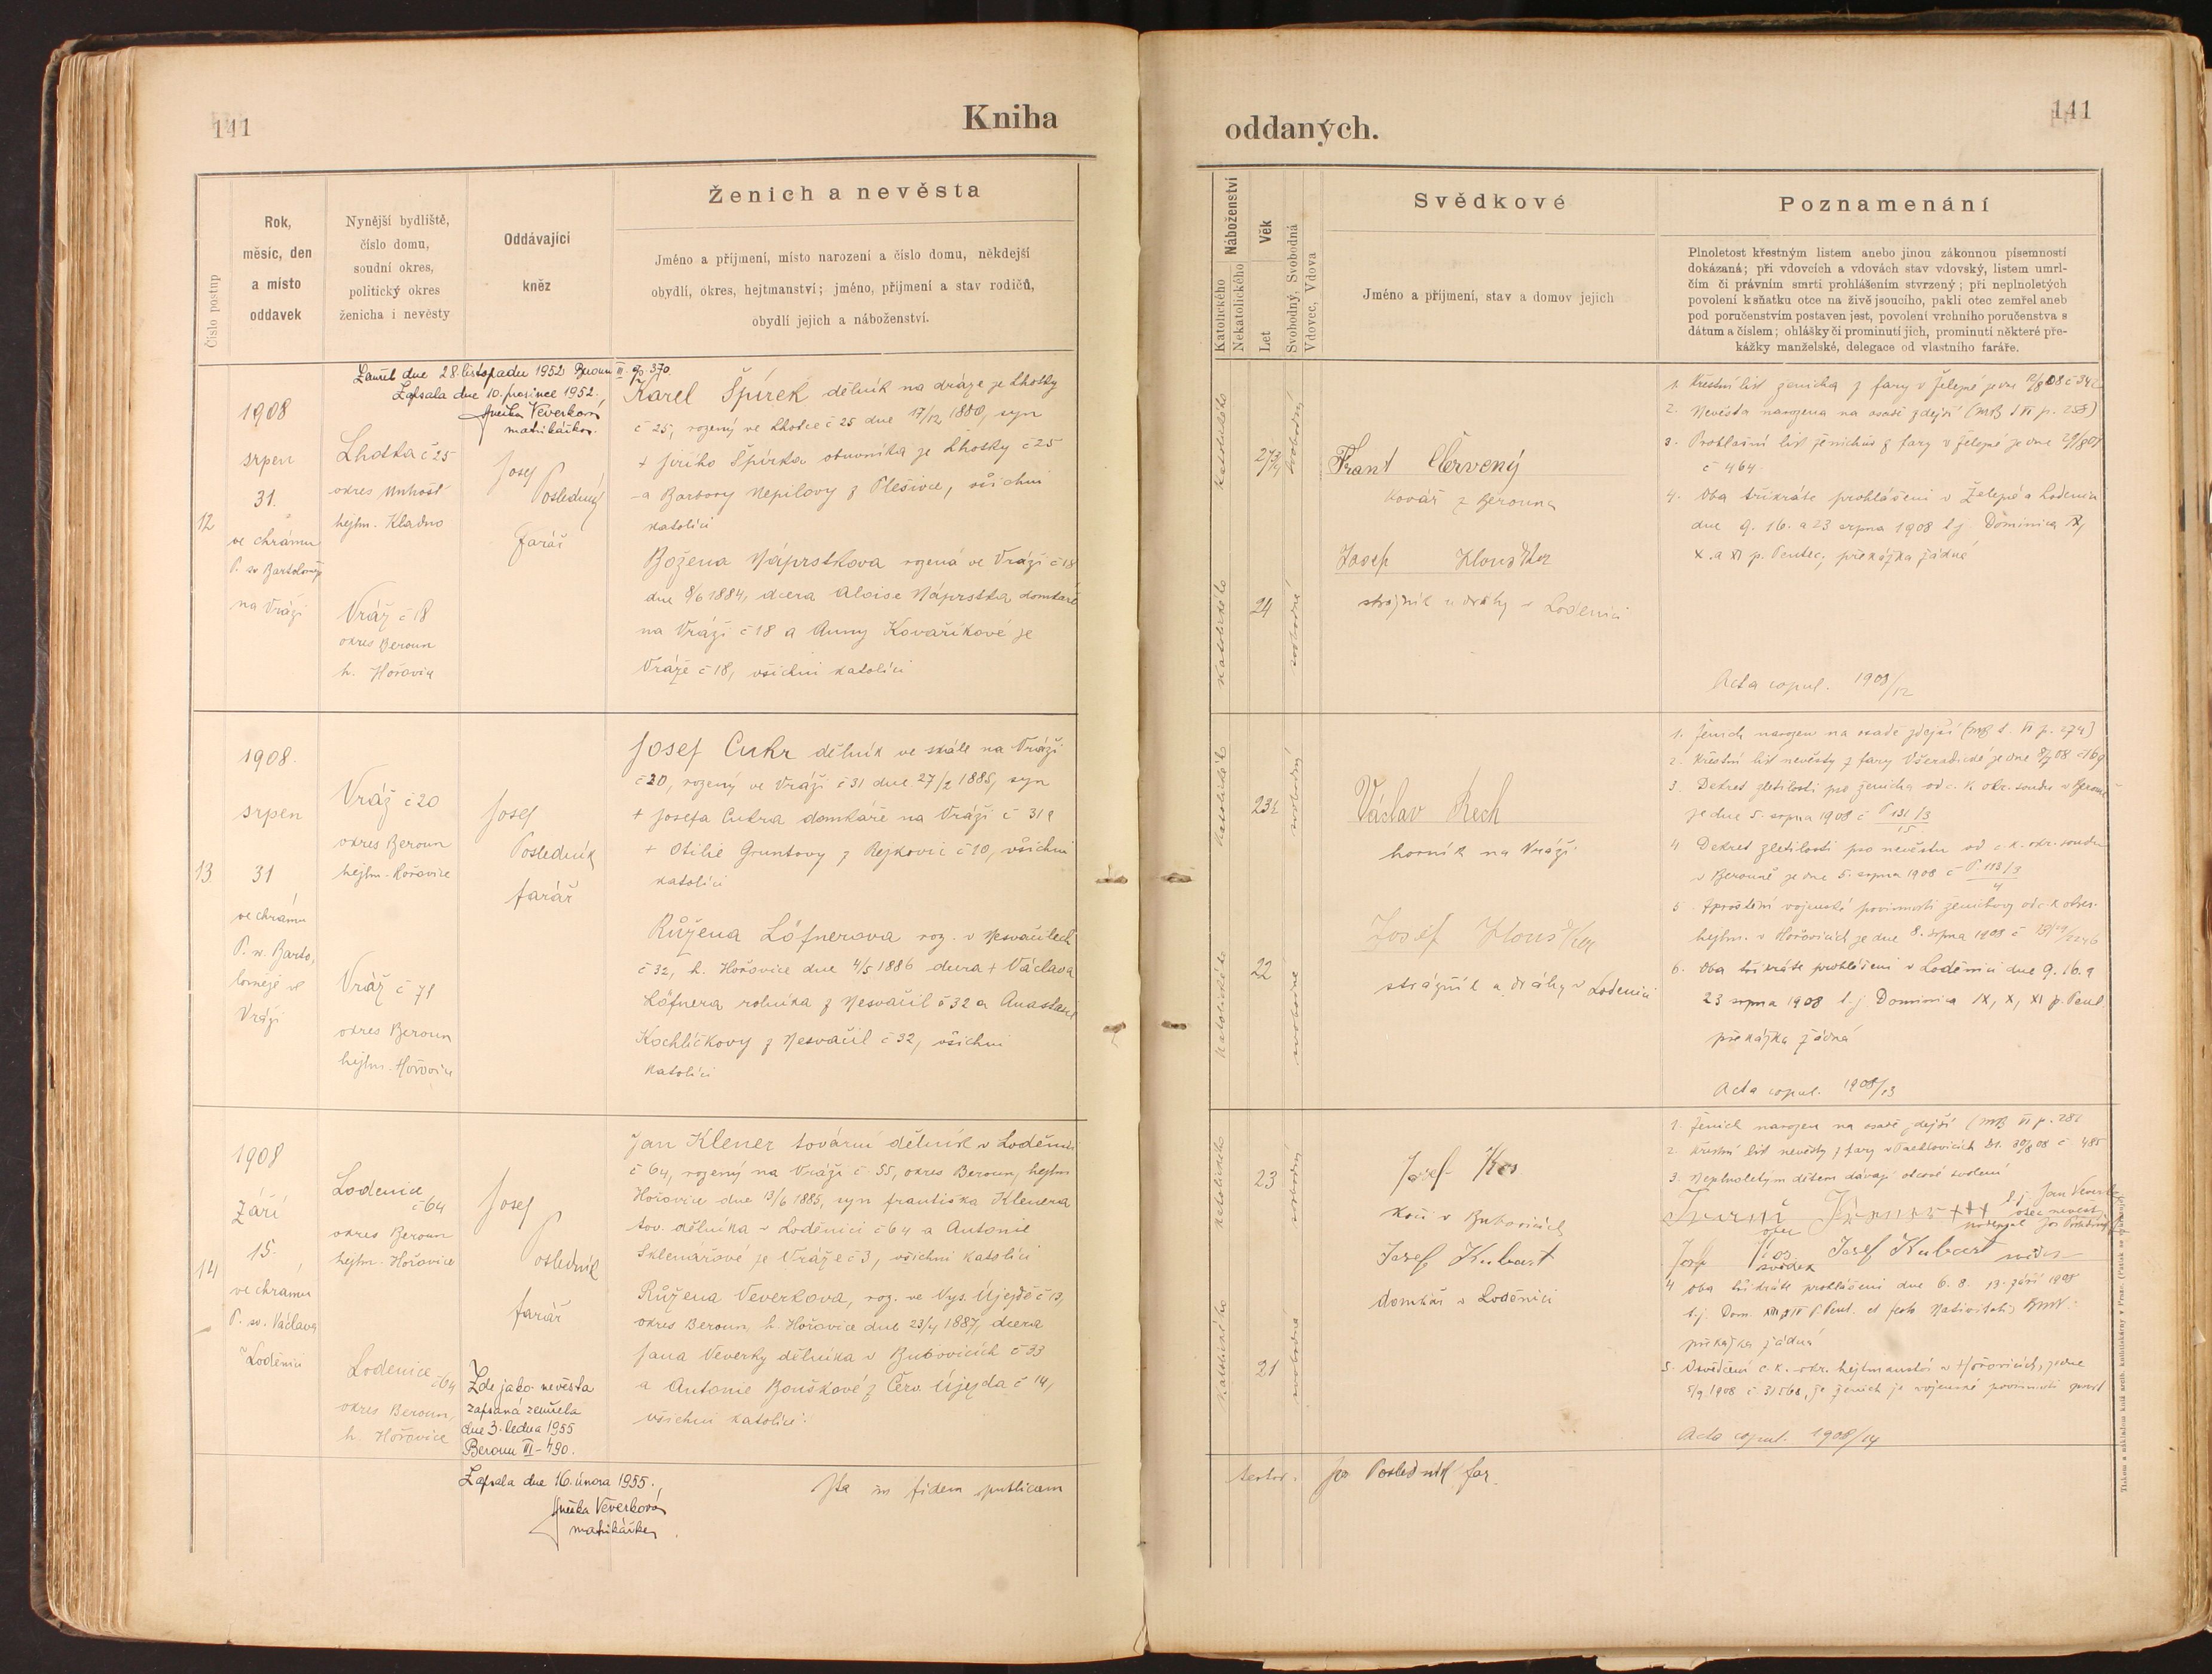 141
Kniha
oddaných.
141
Číslo postup
Rok,
měsíc, den
a místo
oddavek
Nynější bydliště,
číslo domu,
soudní okres,
politický okres
ženicha i nevěsty
Oddávající
kněz
Ženich a nevěsta
Jméno a příjmení, místo narození a číslo domu, někdejší
obydlí, okres, hejtmanství; jméno, příjmení a stav rodičů,
obydlí jejich a náboženství.
Katolického
Nekatolického
Náboženství
Věk
Let
Svobodný, Svobodná
Vdovec, Vdova
Svědkové
Jméno a příjmení, stav a domov jejich
Poznamenání
Plnoletost křestným listem anebo jinou zákonnou písemností
dokázaná; při vdovcích a vdovách stav vdovský, listem umrl-
čím či právním smrti prohlášením stvrzený; při neplnoletých
povolení k sňatku otce na živě jsoucího, pakli otec zemřel aneb
pod poručenstvím postaven jest, povolení vrchního poručenstva s
dátum a číslem; ohlášky či prominutí jich, prominutí některé pře-
kážky manželské, delegace od vlastního faráře.
Zemřel dne 28. listopadu 1952 Beroun III. čp. 370.
Zapsala dne 10. prosince 1952.
Anežka Veverková
matrikářka.
12
1908
srpen
31.
ve chrámu
P. sv Bartoloměje
na Vráži
Lhotka č 25
okres Unhošť
hejtm. Kladno
Vráž č 18
okres Beroun
h. Hořovice
Josef
Posledník
farář
Karel Špírek dělník na dráze ze Lhotky
č 25, rozený ve Lhotce č 25 dne 17/12 1880, syn
+ Jiřího Špírka obuvníka ze Lhotky č 25
a Barbory Nepilovy z Plešivce, všichni
katolíci
Božena Náprstkova rozená ve Vráži č 18
dne 8/6 1884, dcera Aloise Náprstka domkáře
na Vráži č 18 a Anny Kovaříkové ze
Vráže č 18, všichni katolíci
katolického
katolického
27 3/4
24
svobodný
svobodné
Frant Červený
kovář z Berouna
Josef Klouček
strážník u dráhy v Loděnici
1. Křestní list ženicha z fary v Železné ze dne
2. Nevěsta narozena na osadě zdejší (MB VI p. 258)
3. Prohlašní list ženichův z fary v Železné ze dne
č 464
4. Oba třikráte prohlášeni v Železné a Loděnici
dne 9. 16. a 23 srpna 1908 t.j. Dominica IX,
X. a XI p. Pentec; překážka žádná
Acta copul. 1908/12
13
1908.
srpen
31
ve chrámu
P. sv. Barto,
loměje ve
Vráži
Vráž č 20
okres Beroun
hejtm. Hořovice
Vráž č 71
okres Beroun
hejtm. Hořovice
Josef
Posledník
farář
Josef Cukr dělník ve skále na Vráži
č 20, rozený ve Vráži č 31 dne 27/2 1885, syn
+ Josefa Cukra domkáře na Vráži č 31 a
+ Otilie Gruntovy z Rejkovic č 10, všichni
katolíci
Růžena Löfnerova roz. v Nesvačilech
č 32, h. Hořovice dne 4/5 1886 dcera + Václava
Löfnera rolníka z Nesvačil č 32 a Anastasie
Kochlíčkovy z Nesvačil č 32, všichni
katolíci
katolického
katolického
23½
22
svobodný
svobodné
Václav Rech
horník na Vráži
Josef Klouček
strážník u dráhy v Loděnici
1. Ženich narozen na osadě zdejší (MB t. VI p. 274)
2. Křestní list nevěsty z fary Všeradické ze dne 8/7 08 č 169
3. Dekret zletilosti pro ženicha od c. k. okr. soudu v Berouně
ze dne 5. srpna 1908 č P 131/3
15
4 Dekret zletilosti pro nevěstu od c. k. okr. soudu
v Berouně ze dne 5. srpna 1908 č P. 113/3
4
5. Zproštění vojenské povinnosti ženichovy od c. k. okres.
hejtm. v Hořovicích ze dne 8. srpna 1908 č
6. Oba třikráte prohlášeni v Loděnici dne 9. 16. a
23 srpna 1908 t. j Dominica IX, X, XI p. Pent
překážka žádná
Acta copul. 1908/13
14
1908
září
15.
ve chrámu
P. sv. Václava
v Loděnici
Loděnice
č 64
okres Beroun
hejtm. Hořovice
Loděnice
č 64
okres Beroun,
h. Hořovice
Josef
Posledník
farář
Zde jako nevěsta
zapsaná zemřela
dne 3. ledna 1955
Beroun III - 490.
Zapsala dne 16. února 1955.
Anežka Veverková
matrikářka
Jan Klener tovární dělník v Loděnici
č 64, rozený na Vráži č 55, okres Beroun, hejtm
Hořovice dne 13/6 1885, syn Františka Klenera
tov. dělníka v Loděnici č 64 a Antonie
Sklenářové ze Vráže č 3, všichni katolíci
Růžena Veverkova, roz. ve Vys. Újezdě č 13,
okres Beroun, h. Hořovice dne 23/4 1887, dcera
Jana Veverky dělníka v Bubovicích č 33
a Antonie Bouškové z Červ. Újezda č 14,
všichni katolíci.
Ita in fidem publicam
katolického
katolického
23
21
svobodný
svobodné
Josef Kos
kočí v Bubovicích
Josef Kubart
domkář v Loděnici
1. Ženich narozen na osadě zdejší (MB VI p. 281
2. Křestní list nevěsty z fary v
3. Neplnoletým dětem dávají otcové svolení
+++ t. j. Jan Veverka
otec nevěsty
podepsal Jos Posledník
otec
Josef Kos Josef Kubart svědek
svědek
4 Oba třikráte prohlášeni dne 6. 8. 13. září 1908
t. j. Dom. P. Pent. et festo Nativitatis BMV.
překážka žádná
5. Osvědčení c. k. okr. hejtmanství v Hořovicích, ze dne
5/9 1908 č 31568, že ženich je vojenské povinnosti prost
Acta copul. 1908/14
testor. Jos Posledník far.